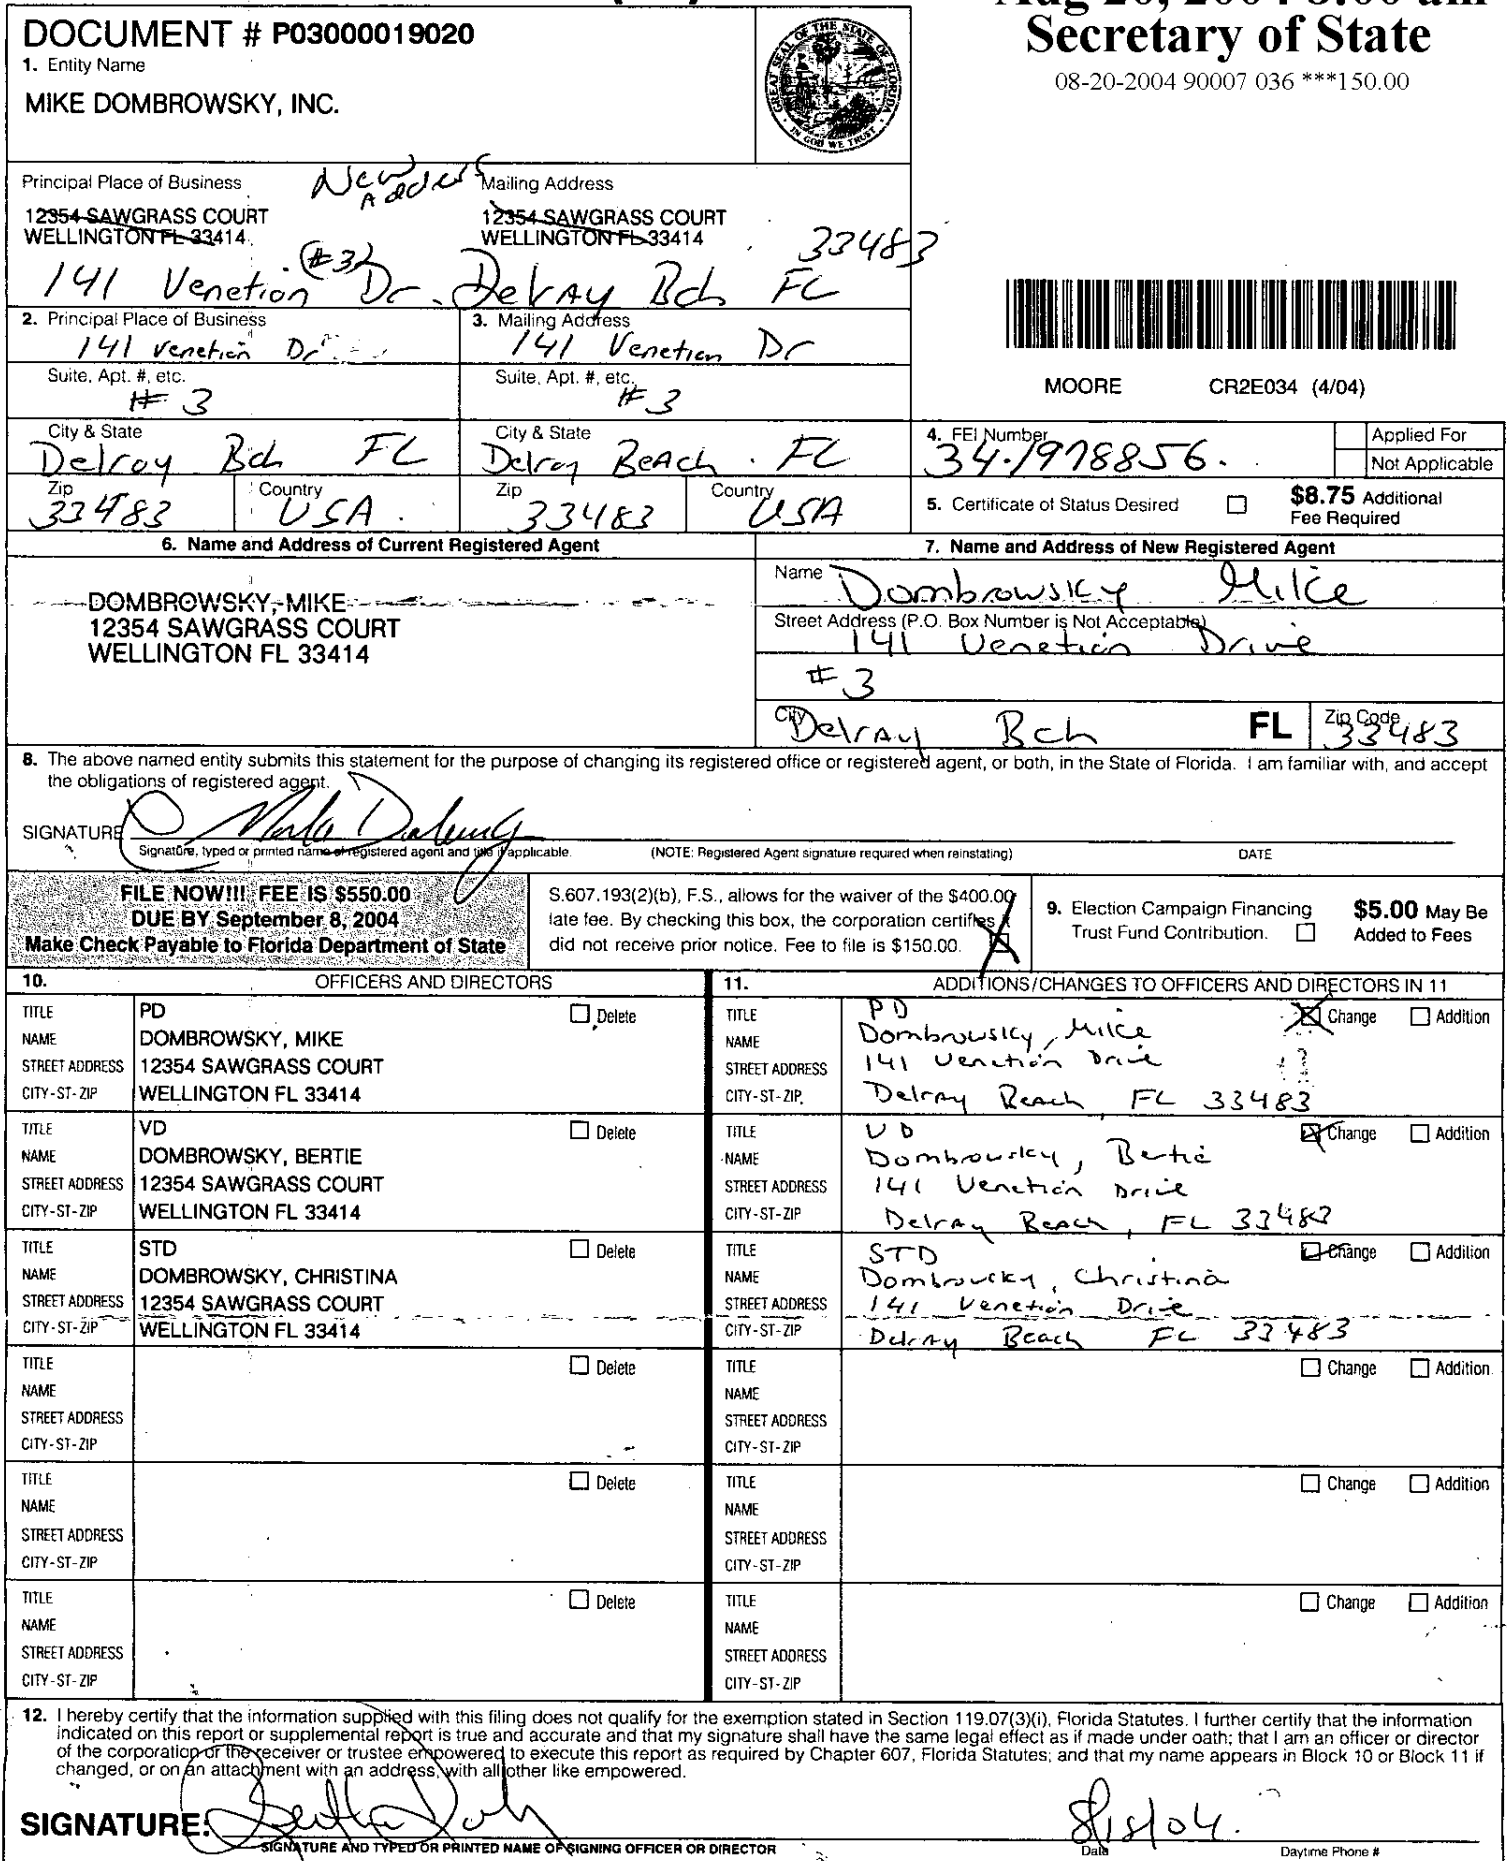 Secretary of State
08-20-2004 90007 036 ***150.00
DOCUMENT # P03000019020
1. Entity Name
MIKE DOMBROWSKY, INC.
GREAT SEAL OF THE STATE OF FLORIDA
IN GOD WE TRUST
New Address
Principal Place of Business
12354 SAWGRASS COURT
WELLINGTON FL 33414
Mailing Address
12354 SAWGRASS COURT
WELLINGTON FL 33414
33483
(#3)
141 Venetion Dr. Delray Bch FL
2. Principal Place of Business
141 Venetian Dr
3. Mailing Address
141 Venetian Dr
Suite, Apt. #, etc.
# 3
Suite, Apt. #, etc.
#3
City & State
Delray Bch FL
City & State
Delray Beach. FL
Zip
33483
Country
USA
Zip
33483
Country
USA
MOORE CR2E034 (4/04)
4. FEI Number
34-1978856.
Applied For
Not Applicable
5. Certificate of Status Desired
$8.75 Additional
Fee Required
6. Name and Address of Current Registered Agent
DOMBROWSKY, MIKE
12354 SAWGRASS COURT
WELLINGTON FL 33414
7. Name and Address of New Registered Agent
Name Dombrowsky Mike
Street Address (P.O. Box Number is Not Acceptable)
141 Venetian Drive
#3
City Delray Bch FL Zip Code 33483
8. The above named entity submits this statement for the purpose of changing its registered office or registered agent, or both, in the State of Florida. I am familiar with, and accept
the obligations of registered agent.
SIGNATURE
Signature, typed or printed name of registered agent and title if applicable.
(NOTE: Registered Agent signature required when reinstating)
DATE
FILE NOW!!! FEE IS $550.00
DUE BY September 8, 2004
Make Check Payable to Florida Department of State
S.607.193(2)(b), F.S., allows for the waiver of the $400.00
late fee. By checking this box, the corporation certifies it
did not receive prior notice. Fee to file is $150.00.
9. Election Campaign Financing
Trust Fund Contribution.
$5.00 May Be
Added to Fees
10. OFFICERS AND DIRECTORS
11. ADDITIONS/CHANGES TO OFFICERS AND DIRECTORS IN 11
TITLE PD Delete
NAME DOMBROWSKY, MIKE
STREET ADDRESS 12354 SAWGRASS COURT
CITY-ST-ZIP WELLINGTON FL 33414
TITLE PD Change Addition
NAME Dombrowsky, Mike
STREET ADDRESS 141 Venetian Drive
CITY-ST-ZIP Delray Beach, FL 33483
TITLE VD Delete
NAME DOMBROWSKY, BERTIE
STREET ADDRESS 12354 SAWGRASS COURT
CITY-ST-ZIP WELLINGTON FL 33414
TITLE VD Change Addition
NAME Dombrowsky, Bertie
STREET ADDRESS 141 Venetian Drive
CITY-ST-ZIP Delray Beach, FL 33483
TITLE STD Delete
NAME DOMBROWSKY, CHRISTINA
STREET ADDRESS 12354 SAWGRASS COURT
CITY-ST-ZIP WELLINGTON FL 33414
TITLE STD Change Addition
NAME Dombrowsky, Christina
STREET ADDRESS 141 Venetian Drive
CITY-ST-ZIP Delray Beach FL 33483
TITLE Delete
NAME
STREET ADDRESS
CITY-ST-ZIP
TITLE Change Addition
NAME
STREET ADDRESS
CITY-ST-ZIP
TITLE Delete
NAME
STREET ADDRESS
CITY-ST-ZIP
TITLE Change Addition
NAME
STREET ADDRESS
CITY-ST-ZIP
TITLE Delete
NAME
STREET ADDRESS
CITY-ST-ZIP
TITLE Change Addition
NAME
STREET ADDRESS
CITY-ST-ZIP
12. I hereby certify that the information supplied with this filing does not qualify for the exemption stated in Section 119.07(3)(i), Florida Statutes. I further certify that the information
indicated on this report or supplemental report is true and accurate and that my signature shall have the same legal effect as if made under oath; that I am an officer or director
of the corporation or the receiver or trustee empowered to execute this report as required by Chapter 607, Florida Statutes; and that my name appears in Block 10 or Block 11 if
changed, or on an attachment with an address, with all other like empowered.
SIGNATURE:
SIGNATURE AND TYPED OR PRINTED NAME OF SIGNING OFFICER OR DIRECTOR
Date
Daytime Phone #